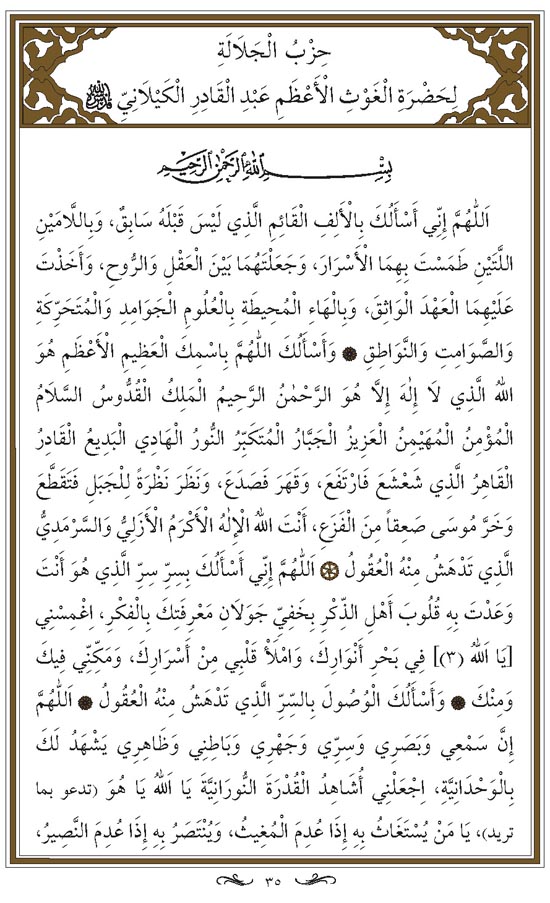 حِزْبُ الْجَلَالَةِ
لِحَضْرَةِ الْغَوْثِ الْأَعْظَمِ عَبْدِ الْقَادِرِ الْكَيْلَانِيّ
بِسْمِ اللهِ الرَّحْمٰنِ الرَّحِيمِ
اَللّٰهُمَّ إِنِّي أَسْأَلُكَ بِالْأَلِفِ الْقَائِمِ الَّذِي لَيْسَ قَبْلَهُ سَابِقٌ، وَبِاللَّامَيْنِ
اللَّتَيْنِ طَمَسْتَ بِهِمَا الْأَسْرَارَ، وَجَعَلْتَهُمَا بَيْنَ الْعَقْلِ وَالرُّوحِ، وَأَخَذْتَ
عَلَيْهِمَا الْعَهْدَ الْوَاثِقَ، وَبِالْهَاءِ الْمُحِيطَةِ بِالْعُلُومِ الْجَوَامِدِ وَالْمُتَحَرِّكَةِ
وَالصَّوَامِتِ وَالنَّوَاطِقِ ۞ وَأَسْأَلُكَ اللّٰهُمَّ بِاسْمِكَ الْعَظِيمِ الْأَعْظَمِ هُوَ
اللهُ الَّذِي لَا إِلٰهَ إِلَّا هُوَ الرَّحْمٰنُ الرَّحِيمُ الْمَلِكُ الْقُدُّوسُ السَّلَامُ
الْمُؤْمِنُ الْمُهَيْمِنُ الْعَزِيزُ الْجَبَّارُ الْمُتَكَبِّرُ النُّورُ الْهَادِي الْبَدِيعُ الْقَادِرُ
الْقَاهِرُ الَّذِي شَعْشَعَ فَارْتَفَعَ، وَقَهَرَ فَصَدَعَ، وَنَظَرَ نَظْرَةً لِلْجَبَلِ فَتَقَطَّعَ
وَخَرَّ مُوسَى صَعقاً مِنَ الْفَزَعِ، أَنْتَ اللهُ الْإِلٰهُ الْأَكْرَمُ الْأَزَلِيُّ وَالسَّرْمَدِيُّ
الَّذِي تَدْهَشُ مِنْهُ الْعُقُولُ ۞ اَللّٰهُمَّ إِنِّي أَسْأَلُكَ بِسِرِّ سِرِّ الَّذِي هُوَ أَنْتَ
وَعَدْتَ بِهِ قُلُوبَ أَهْلِ الذِّكْرِ بِخَفِيِّ جَوَلَانِ مَعْرِفَتِكَ بِالْفِكْرِ، اغْمِسْنِي
[يَا اللهُ (٣)] فِي بَحْرِ أَنْوَارِكَ، وَامْلَأْ قَلْبِي مِنْ أَسْرَارِكَ، وَمَكِّنِّي فِيكَ
وَمِنْكَ ۞ وَأَسْأَلُكَ الْوُصُولَ بِالسِّرِّ الَّذِي تَدْهَشُ مِنْهُ الْعُقُولُ ۞ اَللّٰهُمَّ
إِنَّ سَمْعِي وَبَصَرِي وَسِرِّي وَجَهْرِي وَبَاطِنِي وَظَاهِرِي يَشْهَدُ لَكَ
بِالْوَحْدَانِيَّةِ، اِجْعَلْنِي أُشَاهِدُ الْقُدْرَةَ النُّورَانِيَّةَ يَا اَللهُ يَا هُوَ (تدعو بما
تريد)، يَا مَنْ يُسْتَغَاثُ بِهِ إِذَا عُدِمَ الْمُغِيثُ، وَيُنْتَصَرُ بِهِ إِذَا عُدِمَ النَّصِيرُ،
٣٥